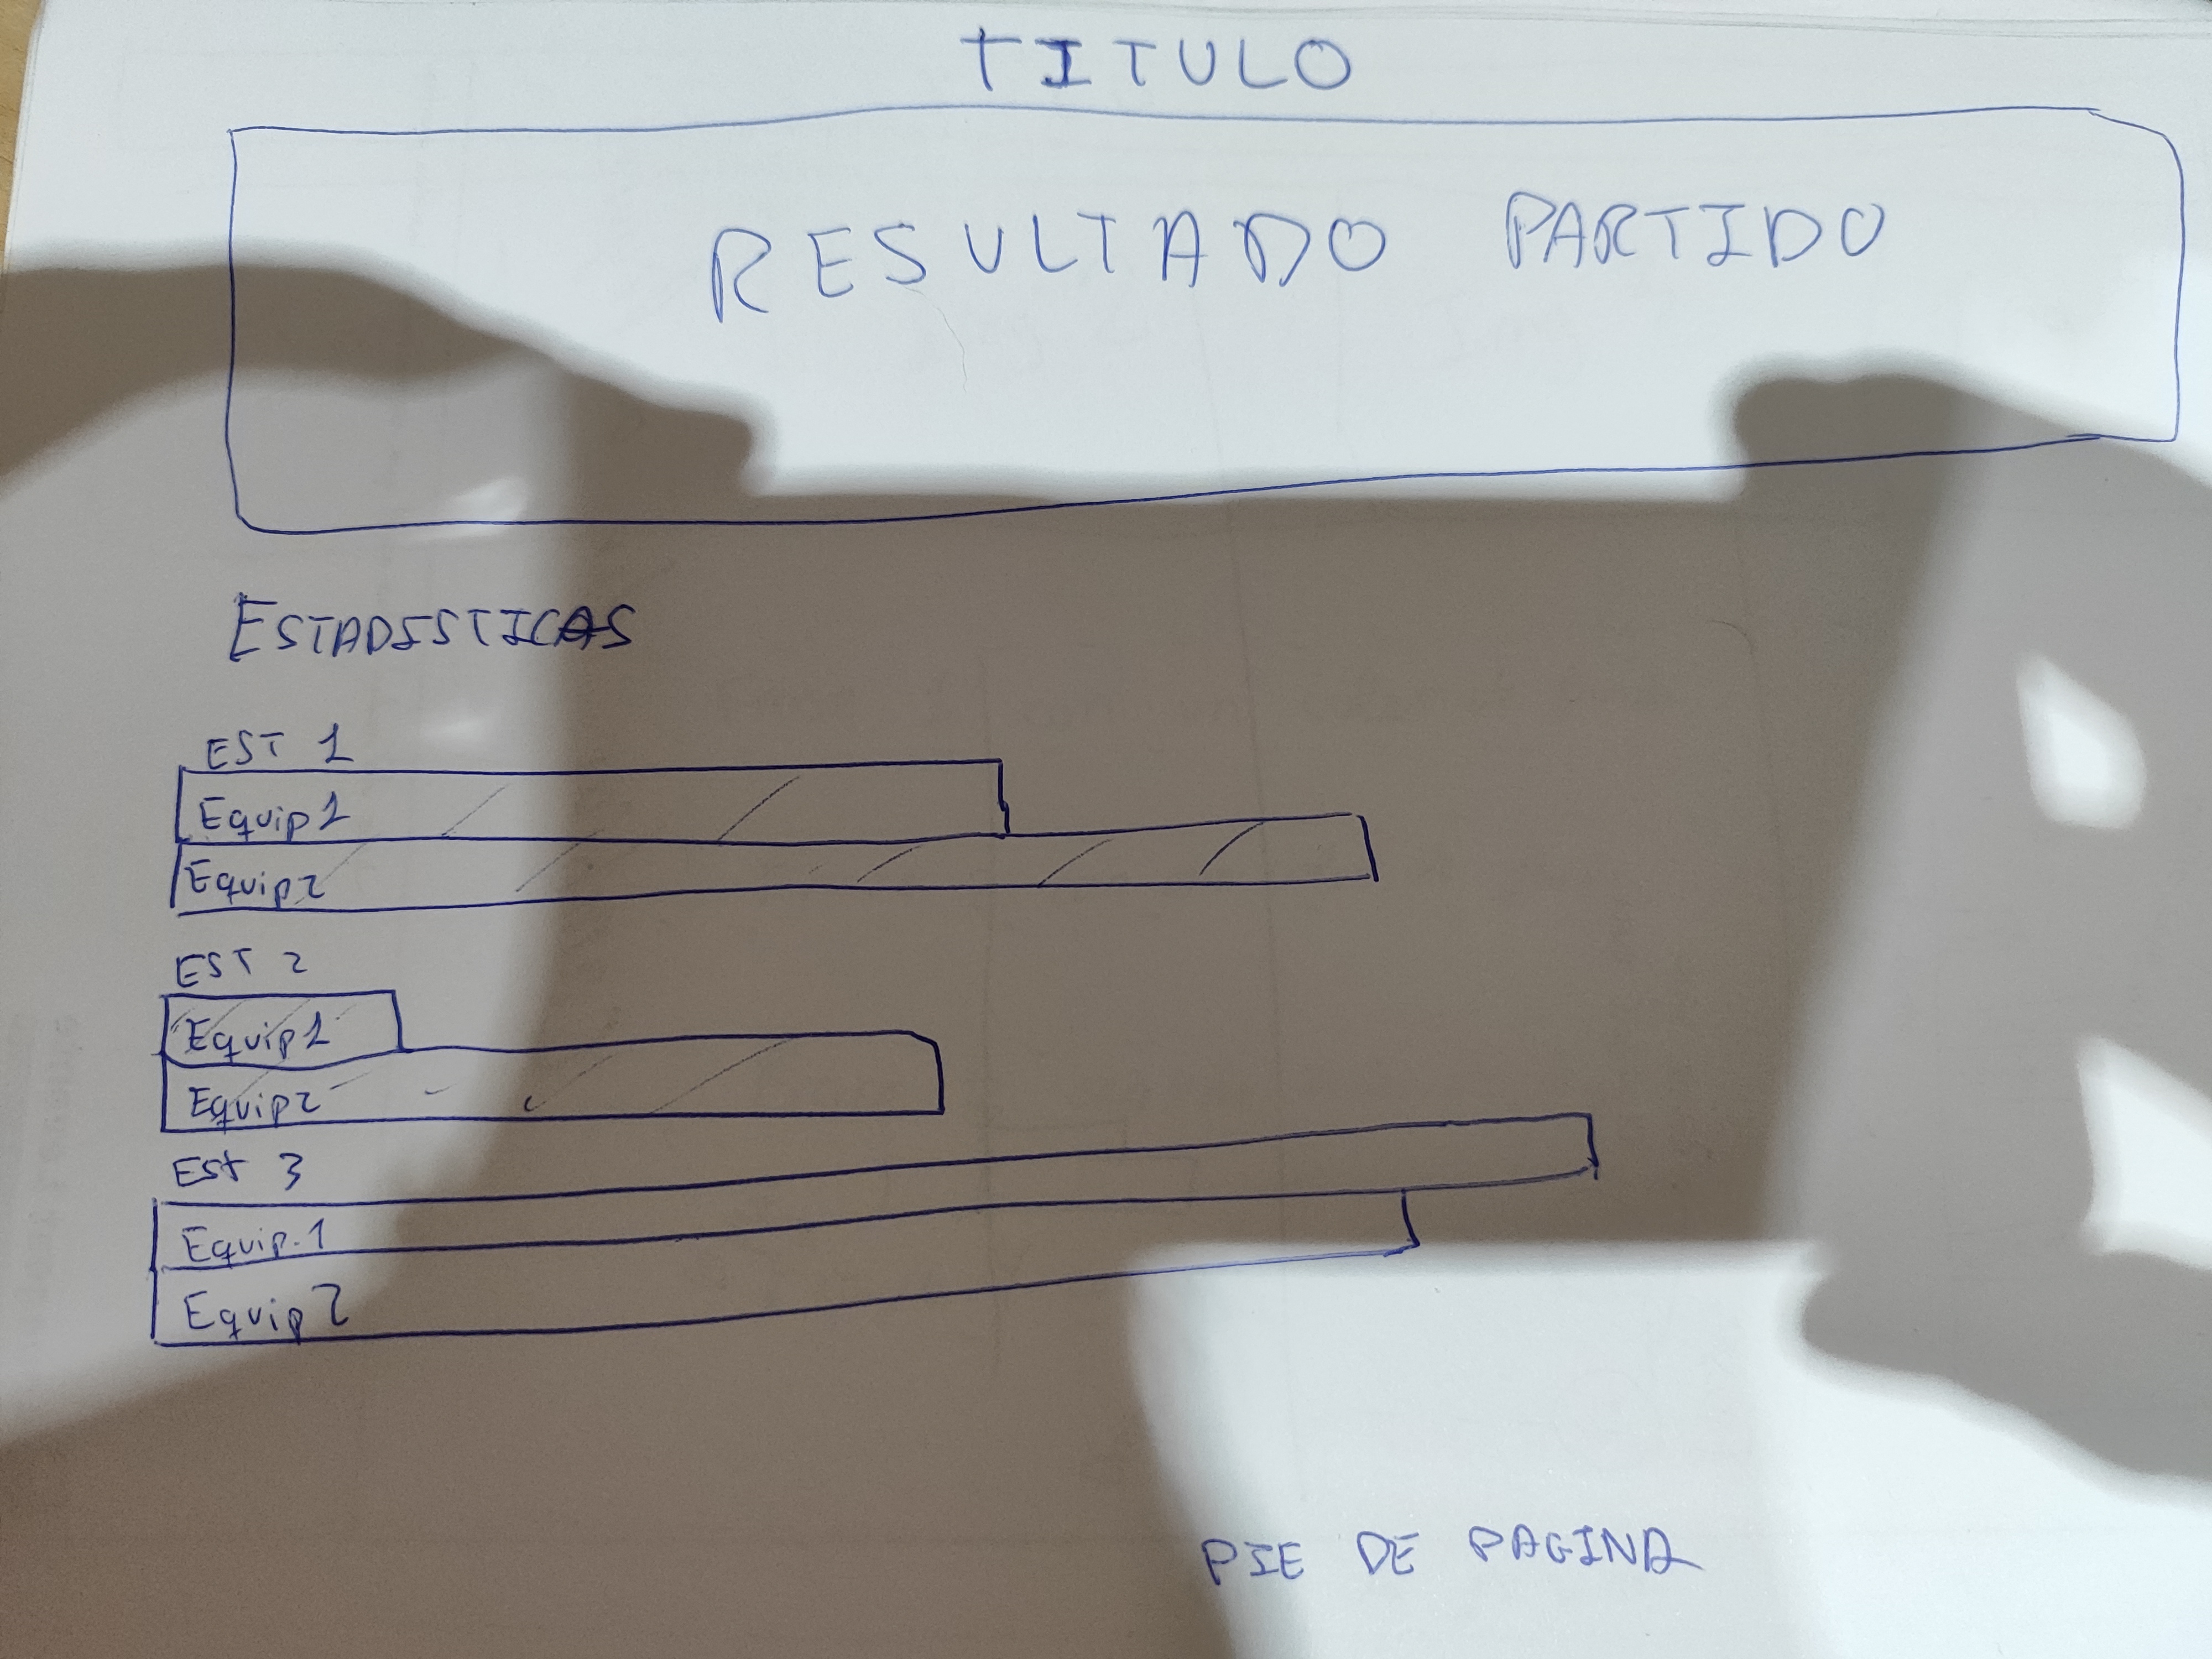 TITULO
RESULTADO PARTIDO
ESTADISTICAS
EST 1
Equip1
Equip2
EST 2
Equip1
Equip2
Est 3
Equip.1
Equip2
PIE DE PAGINA